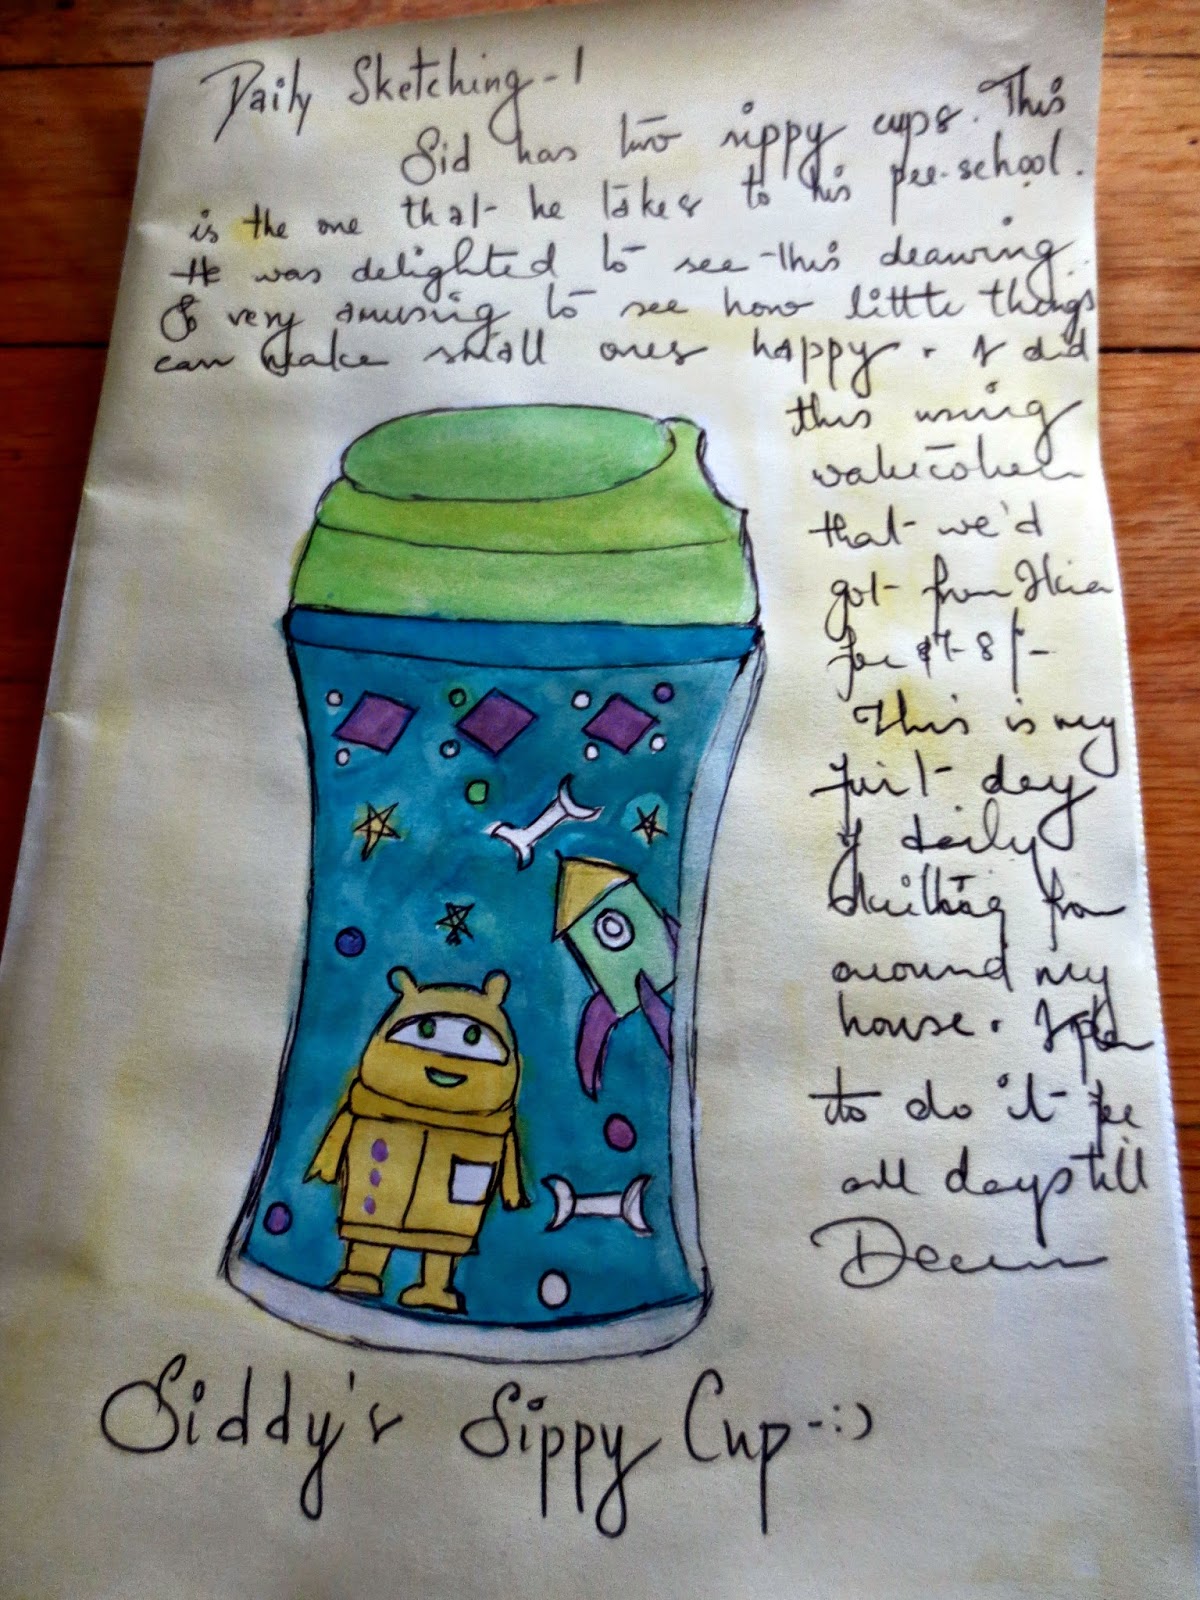 Daily Sketching - 1
Sid has two sippy cups. This
is the one that he takes to his pre-school.
He was delighted to see this drawing.
So very amusing to see how little things
can make small ones happy. I did
this using
watercolour
that we'd
got from Ikea
for $7-8/-
This is my
first day
of daily
sketching from
around my
house. I plan
to do it for
all days till
Siddy's Sippy Cup -:)